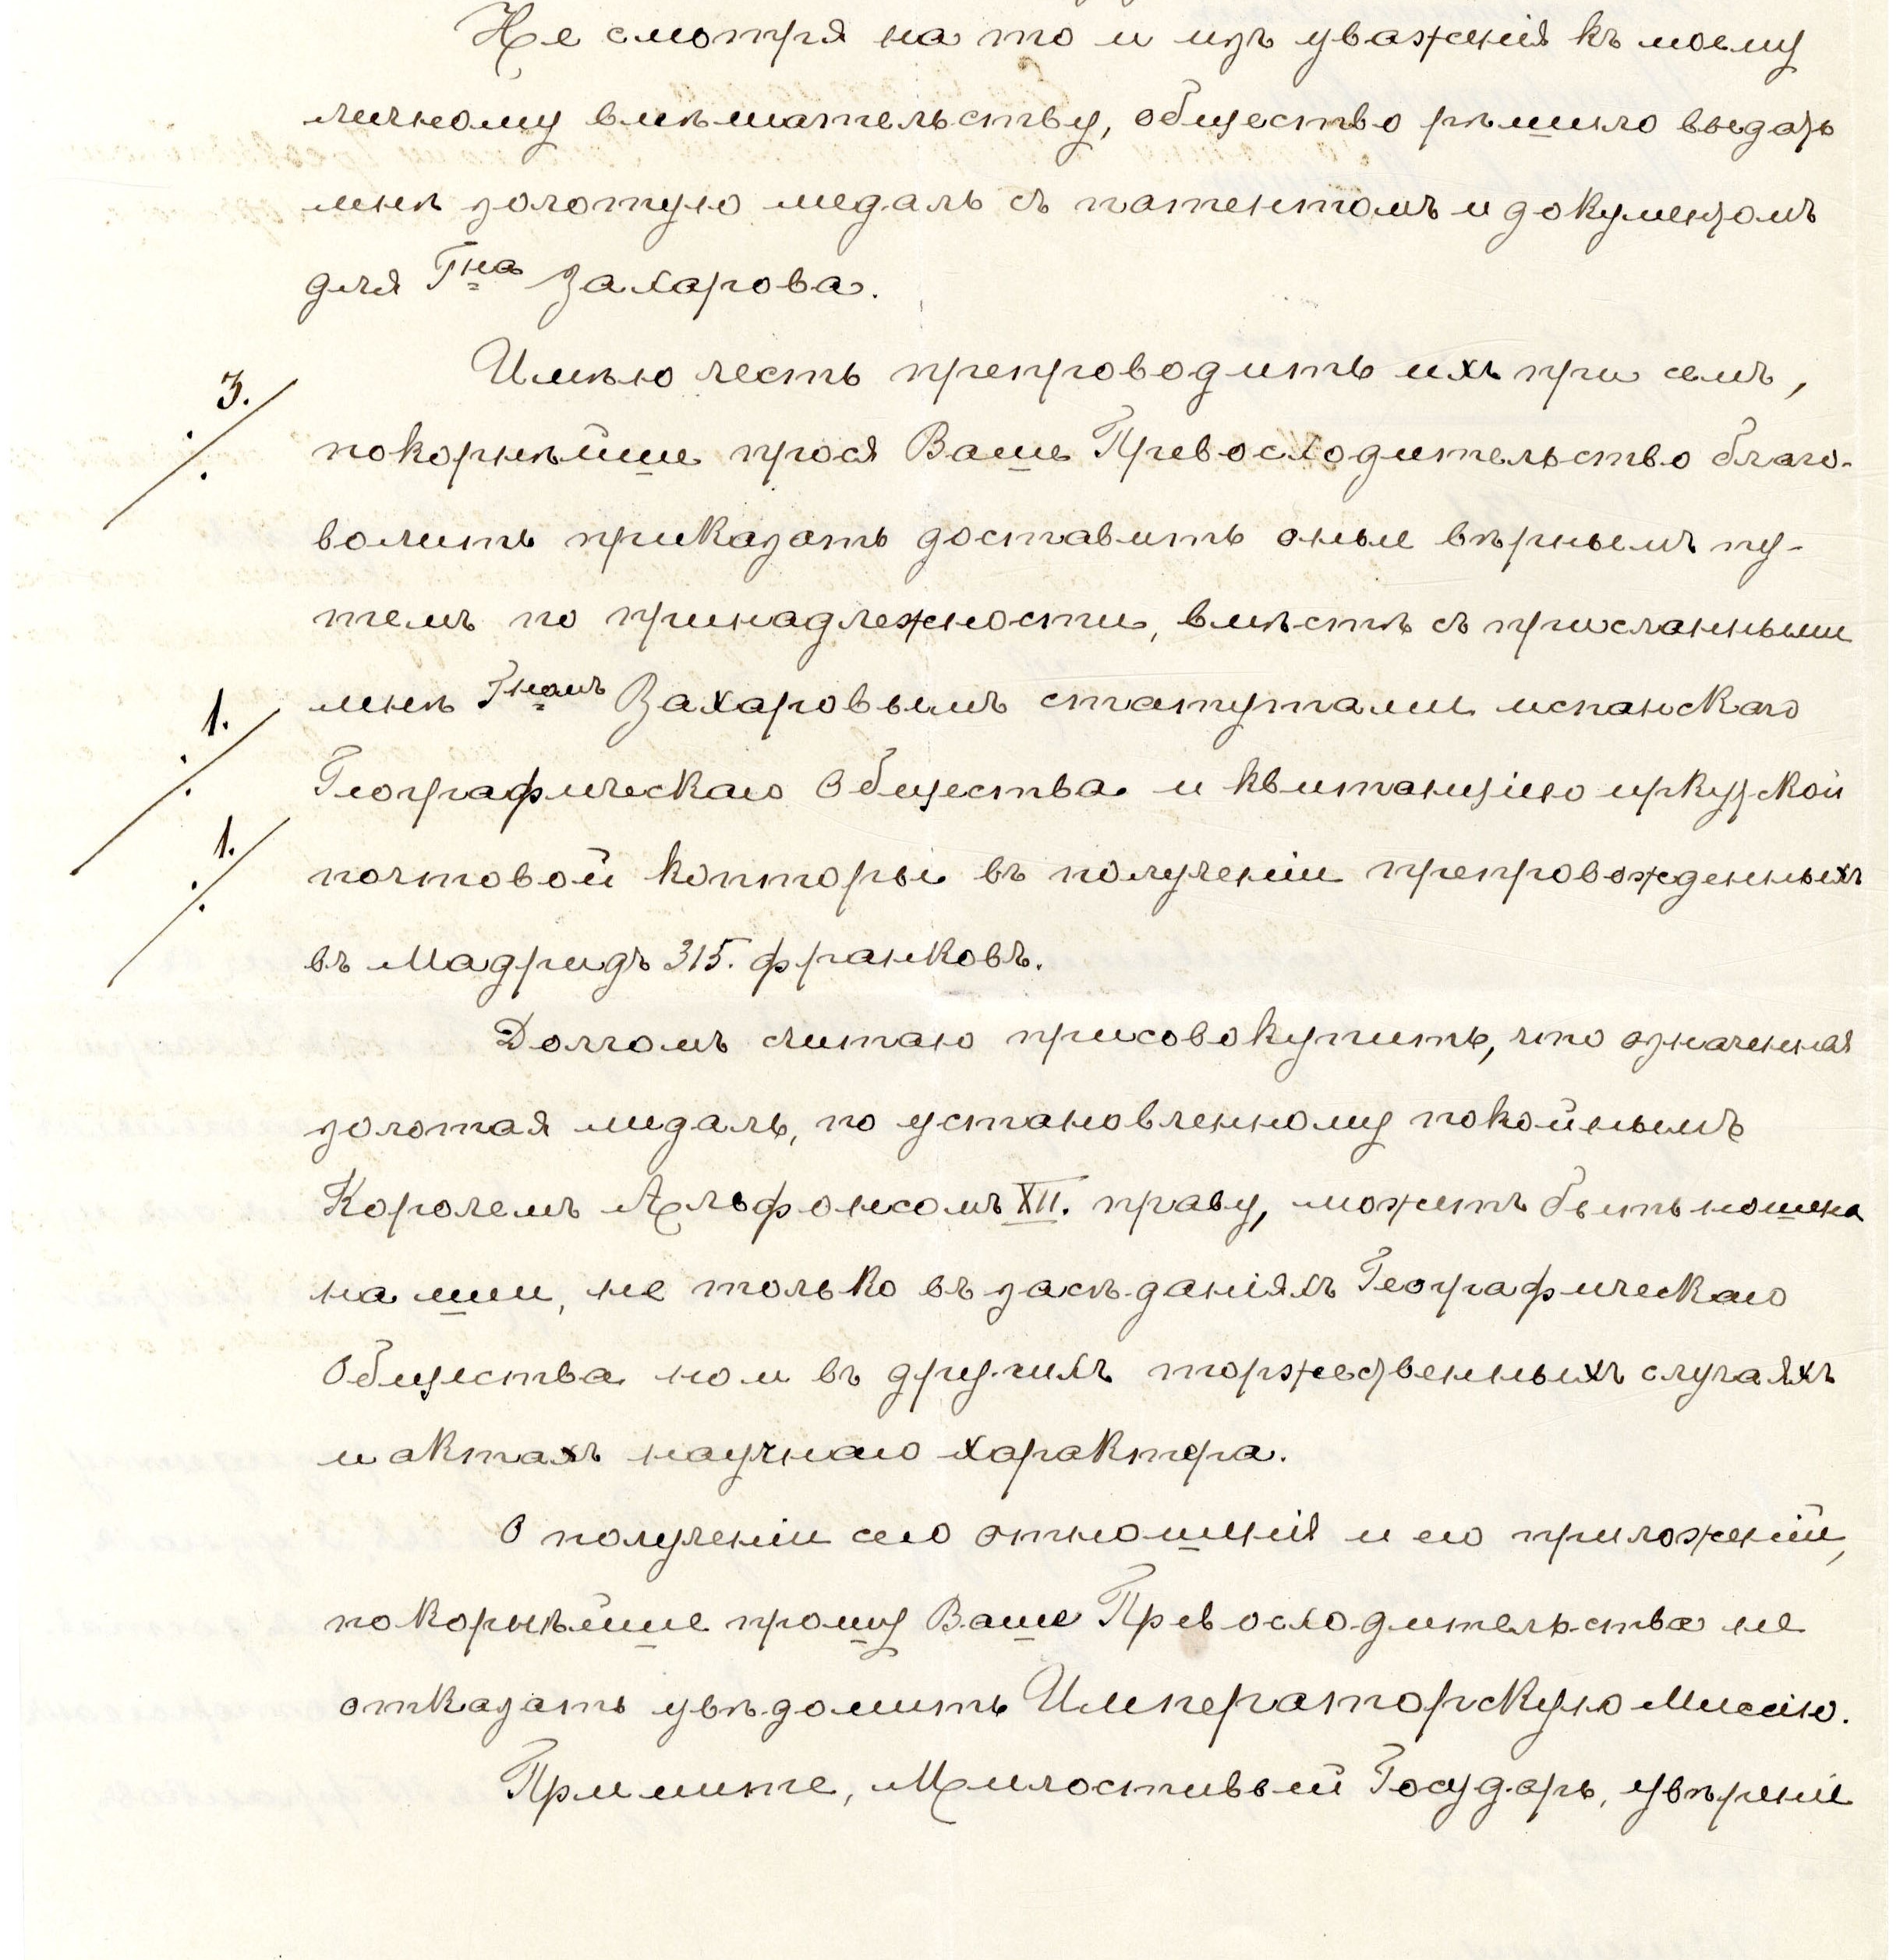 Не смотря на то и изъ уваженія къ моему
личному вмѣшательству, общество рѣшило выдать
мнѣ золотую медаль съ патентомъ и документомъ
для Г<sup>на</sup> Захарова.
Имѣю честь препроводить ихъ при семъ,
3.
покорнѣйше прося Ваше Превосходительство благо-
волить приказать доставить оные вѣрнымъ пу-
темъ по принадлежности, вмѣстѣ съ присланными
1.
мнѣ Г<sup>номъ</sup> Захаровымъ статутами испанскаго
Географическаго Общества и квитанціею иркутской
1.
почтовой конторы въ полученіи препровожденныхъ
въ Мадридъ 315. франковъ.
Долгомъ считаю присовокупить, что означенная
золотая медаль, по установленному покойнымъ
Королемъ Альфонсомъ XII. праву, можетъ быть ношена
на шеи, не только въ засѣданіяхъ Географическаго
Общества но и въ другихъ торжественныхъ случаяхъ
и актахъ научнаго характера.
О полученіи сего отношенія и его приложеній,
покорнѣйше прошу Ваше Превосходительства не
отказать увѣдомить Императорскую Миссію.
Примите, Милостивый Государь, увѣреніе